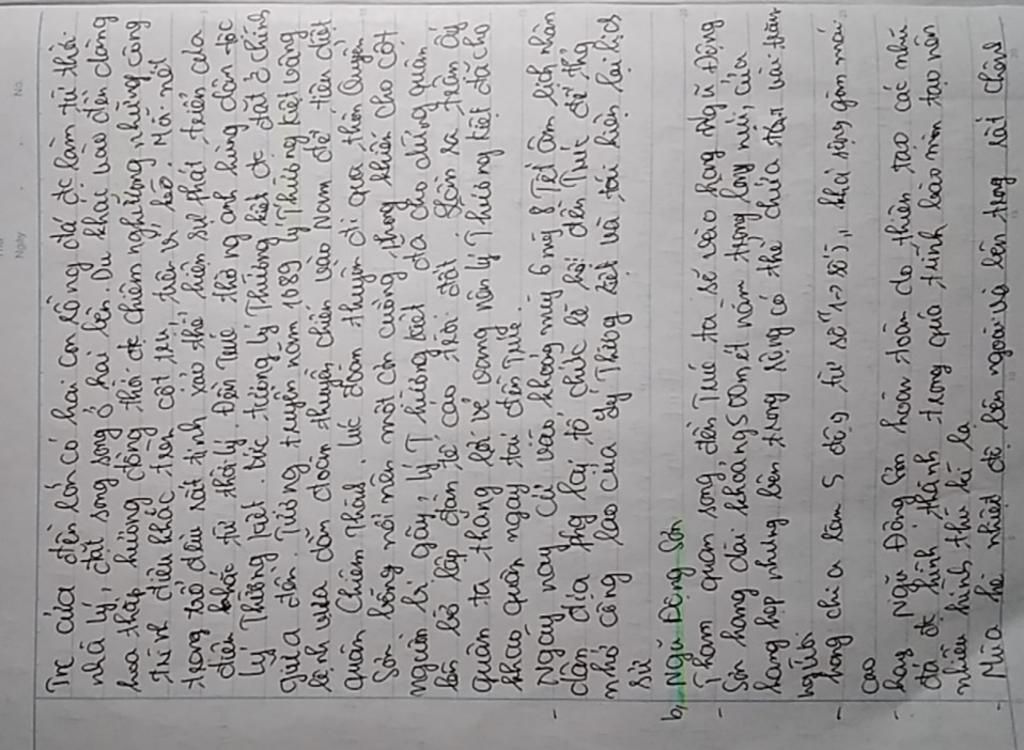 No.
Ngày
Trc cửa đền lớn có hai con rồng đá đc làm từ thời
nhà Lý, đặt song song ở hai bên. Du khách vào đền dâng
hoa thắp hương đồng thời đc chiêm ngưỡng những công
trình điêu khắc trên cột, trên vì kèo. Mỗi nét
trạm trổ đều rất tinh xảo thể hiện sự phát triển của
điêu khắc từ thời lý. Đền Trúc thờ ng anh hùng dân tộc
Lý Thường Kiệt. Bức tượng Lý Thường Kiệt đc đặt ở chính
giữa đền. Tương truyền năm 1089 Lý Thường Kiệt vâng
lệnh vua dẫn đoàn thuyền chiến vào Nam để tiến diệt
quân Chiêm Thành. Lúc đoàn thuyền đi qua thôn Quyển
Sơn bỗng nổi lên một cơn cuồng phong khiến cho cột
người bị gãy, Lý Thường Kiệt đã cho dừng quân
lên bờ lập đàn tế cáo trời đất. Hôm sau trên ấy
quân ta thắng lợi vẻ vang nên Lý Thường Kiệt đã cho
khao quân ngay tại đền Trúc.
- Ngày nay cứ vào khoảng mùng 6 mùng 8 Tết âm lịch nhân
dân địa phg lại tổ chức lễ hội đền Trúc để tg
nhớ công lao của Lý Thường Kiệt và tái hiện lại lịch
sử
b, Ngũ Động Sơn
- Tham quan xong đền Trúc ta sẽ vào hang Ngũ Động
Sơn hang dài khoảng 500 mét nằm trong lòng núi, cửa
hang hẹp nhưng bên trong rộng có thể chứa tận vài trăm
người
- hang chia làm 5 động từ số "1 -> số 5",
cao
- hang Ngũ Động Sơn hoàn toàn do thiên tạo các nhũ
đá đc hình thành trong quá trình bào mòn tạo nên
nhiều hình thù kì lạ
- Mùa hè nhiệt độ bên ngoài và bên trong rất chênh